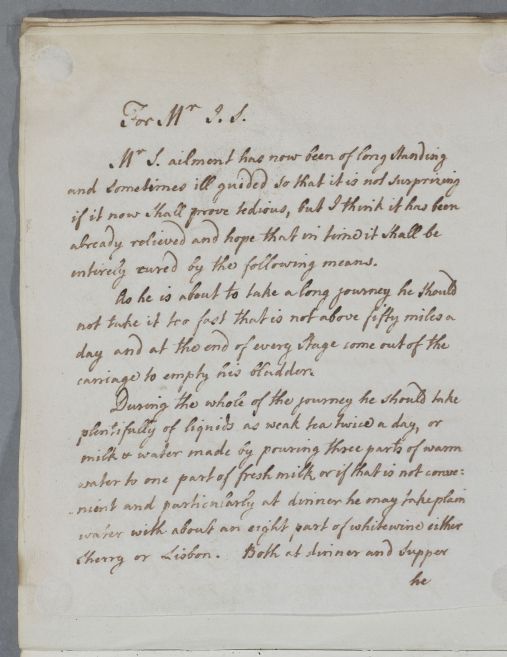 For Mr J. S.
Mr S. ailment has now been of long standing
and sometimes ill guided so that it is not surprizing
if it now shall prove tedious, but I think it has been
already relieved and hope that in time it shall be
entirely cured by the following means.
As he is about to take a long journey he should
not take it too fast that is not above fifty miles a
day and at the end of every stage come out of the
carriage to empty his bladder.
During the whole of the journey he should take
plentifully of liquids as weak tea twice a day, or
milk & water made by pouring three parts of warm
water to one part of fresh milk, or if that is not conve=
nient and particularly at dinner he may take plain
water with about an eight part of white wine either
Sherry or Lisbon. Both at dinner and supper
he